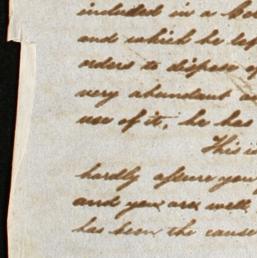 included in a
and which he left
orders to dispose of
very abundant
use of it, he has
This is
hardly assure you
and you are well
has been the cause